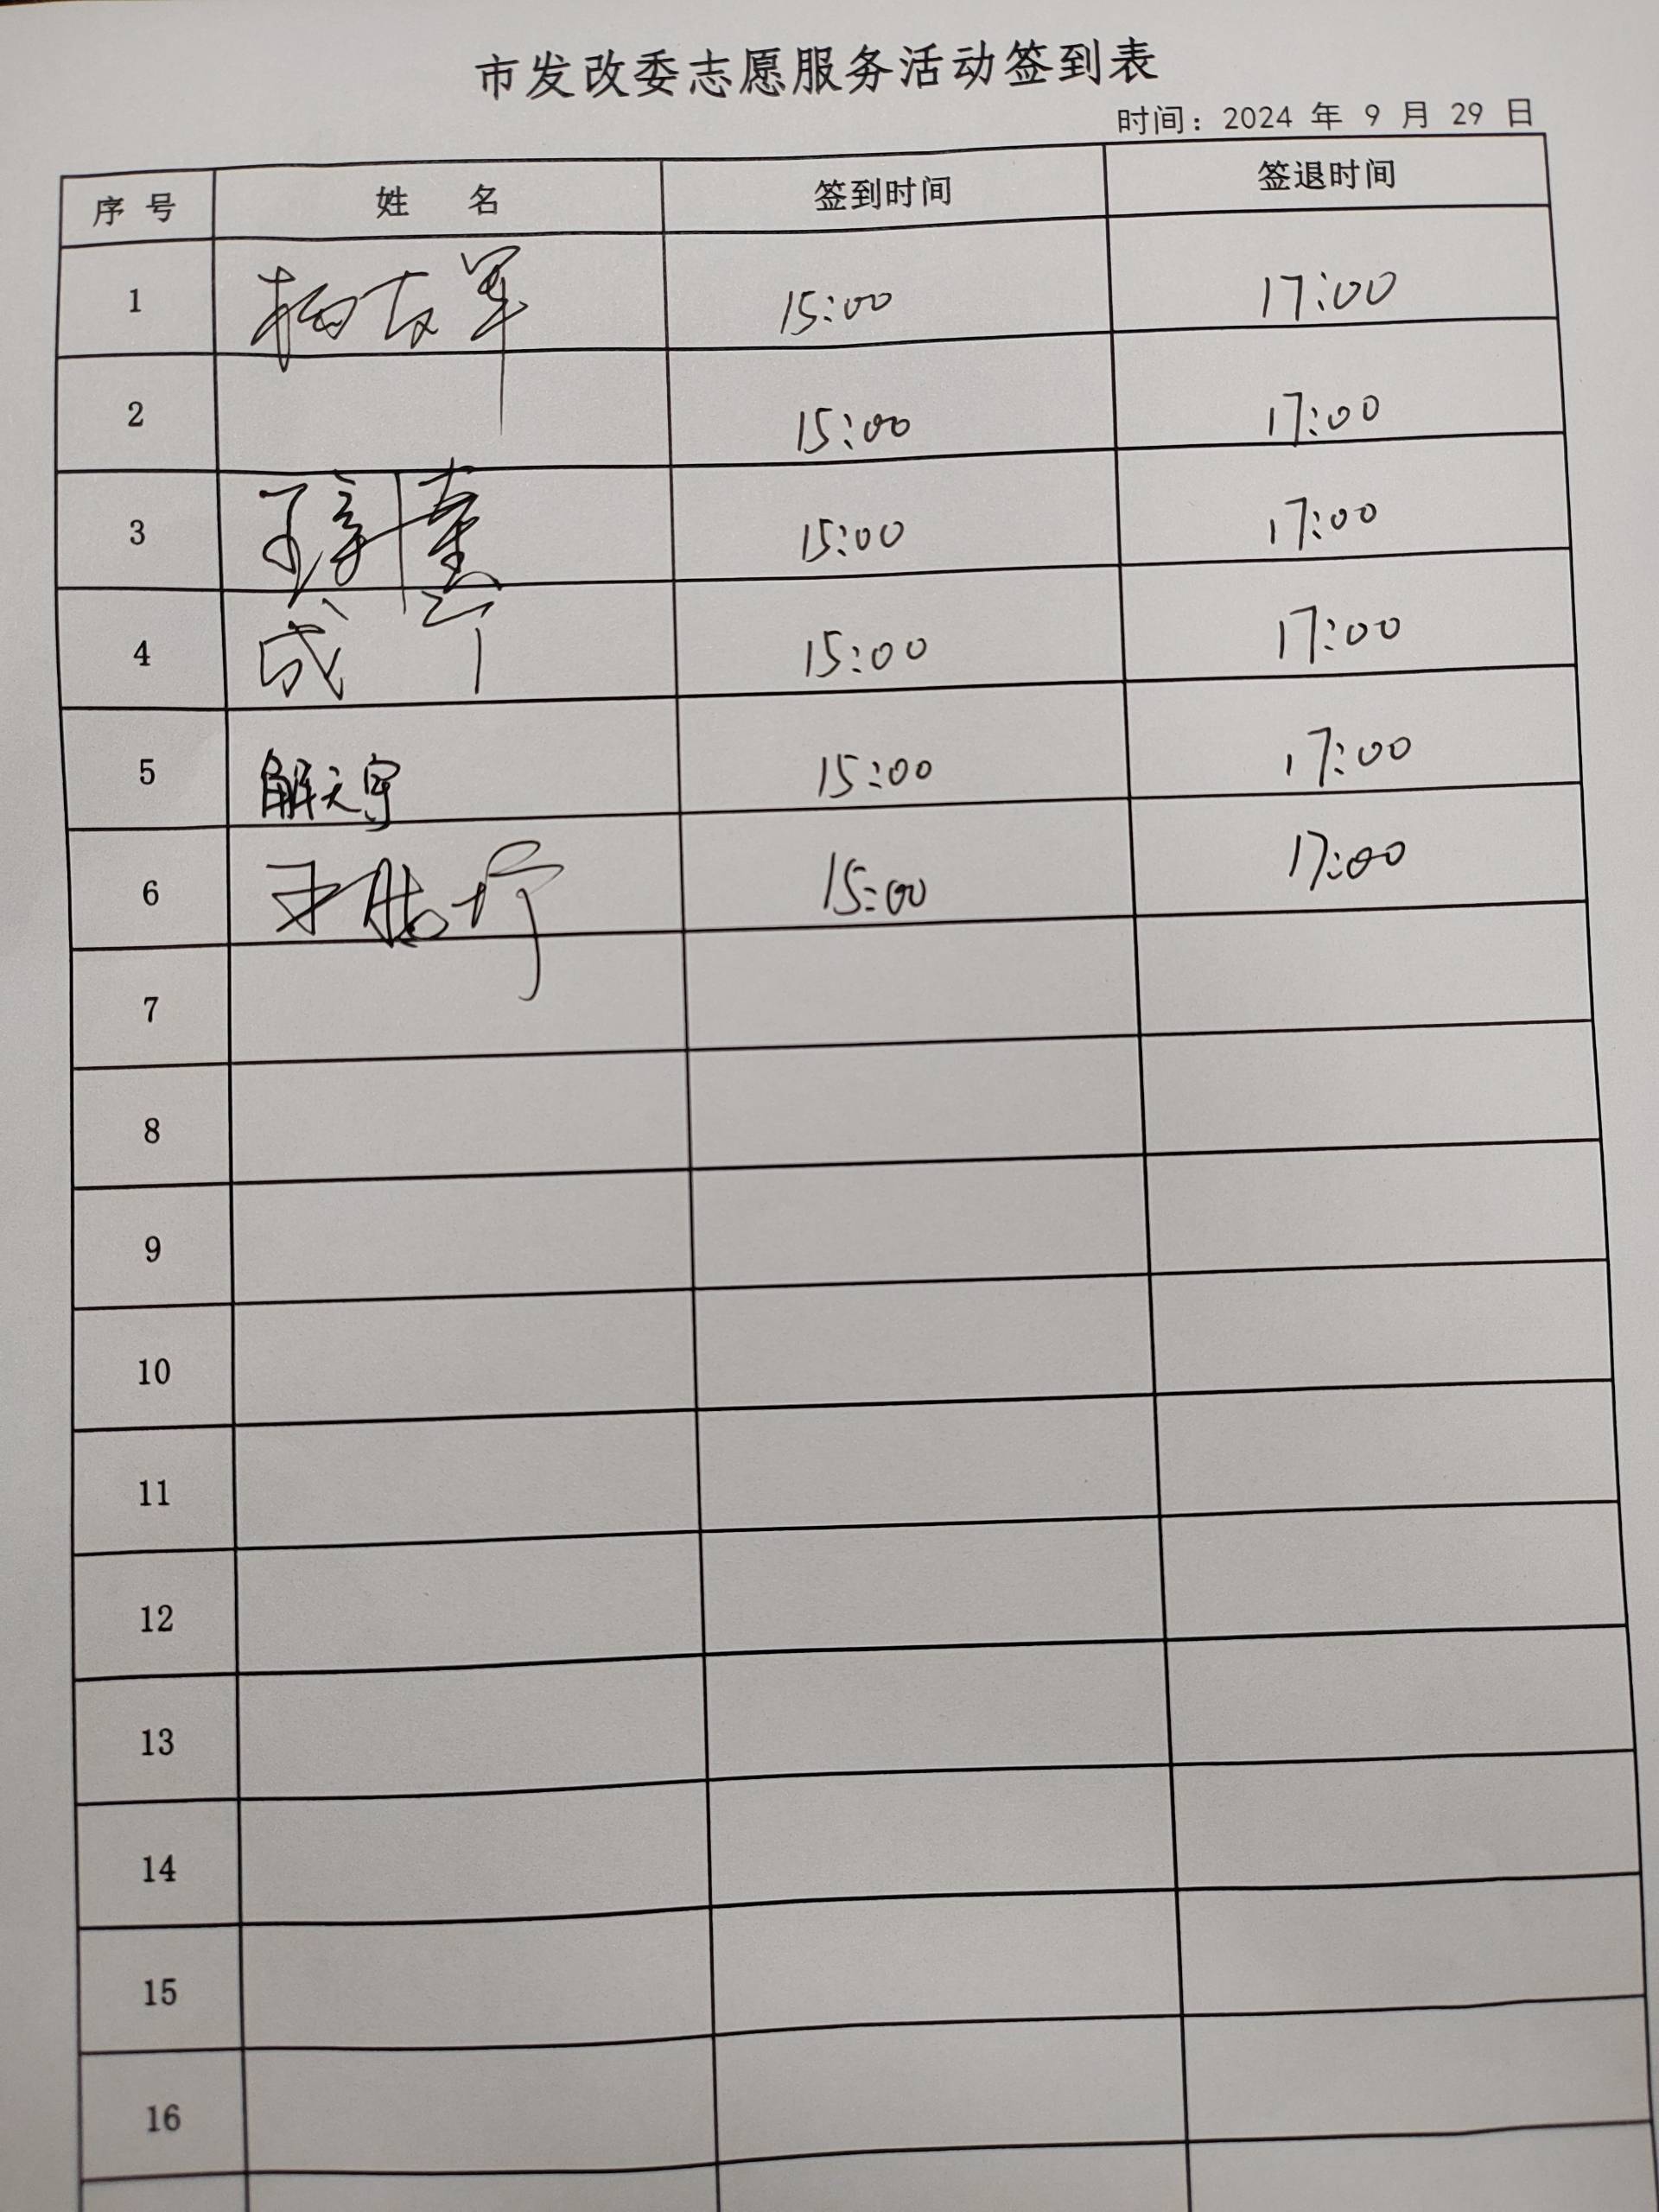 市发改委志愿服务活动签到表
时间：2024 年 9 月 29 日
序 号 姓 名 签到时间 签退时间
1 15:00 17:00
2 15:00 17:00
3 15:00 17:00
4 成 15:00 17:00
5 解天宇 15:00 17:00
6 15:00 17:00
7
8
9
10
11
12
13
14
15
16